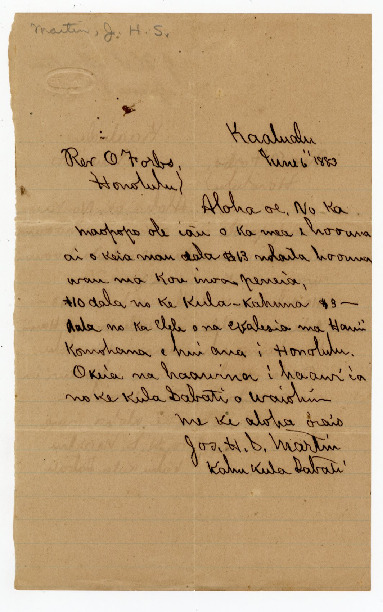 Martin, J. H. S.
Kaalualu
June 6" 1883
Rev O Forbs,
Honolulu
Aloha oe. No ka
maopopo ole iau o ka mea e hoouna
ai o keia mau dala $13 nolaila hoouna
wau ma kou inoa peneia,
$10 dala no ke Kula-Kahuna $3-
dala no ka Elele o na Ekalesia ma Hawii
Komohana e hui ana i Honolulu.
O keia na haawina i haawi ia
no ke Kula Sabati o Waiohinu
me ke aloha oiaio
Jos. H. S. Martin
Kahu Kula Sabati